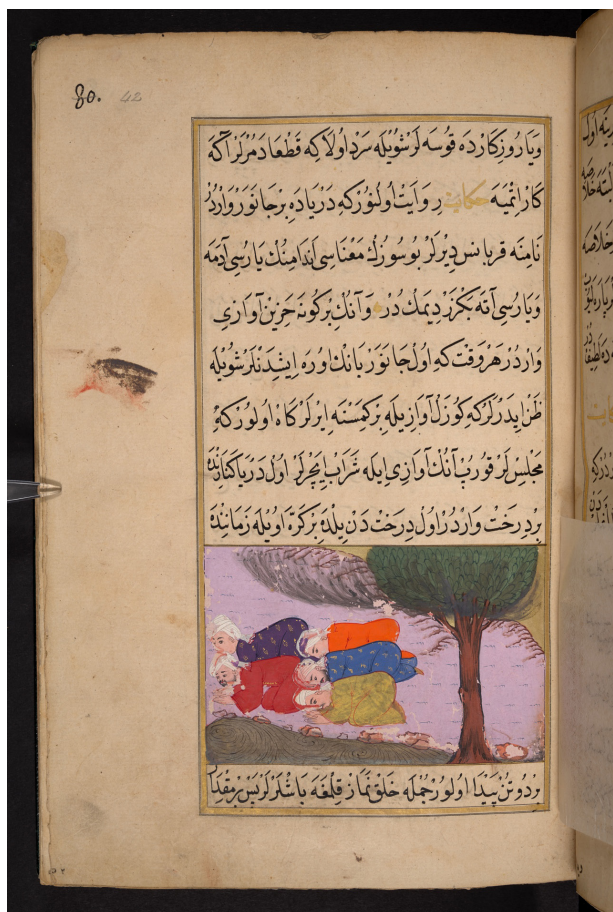 80. 42
ویا روزکارده قوسه لر شویله سرد اولا که قطعا دمرلر آکه
کار اتمیه حکایت روایت اولنورکه دریاده بر جانور واردر
نامنه قربانس دیرلر بو سوزك معناسی اندامنك یاروسی آدمه
ویاروسی آته بکزر دیمك در وآنك بر کونه حزین آوازی
واردر هر وقت که اول جانور بانك اوره ایشدنلر شویله
ظن ایدرلر که کوزل آوازیله بر کمسنه ایرلر کاه اولور که
مجلس لر قوروب آنك آوازی ایله شراب ایچرلر اول دریا کنارنده
بر درخت واردر اول درخت دن یلده بر کره اویله زماننده
بر دوتن پیدا اولور جمله خلق نماز قلمغه باشلرلر پس بر مقدار